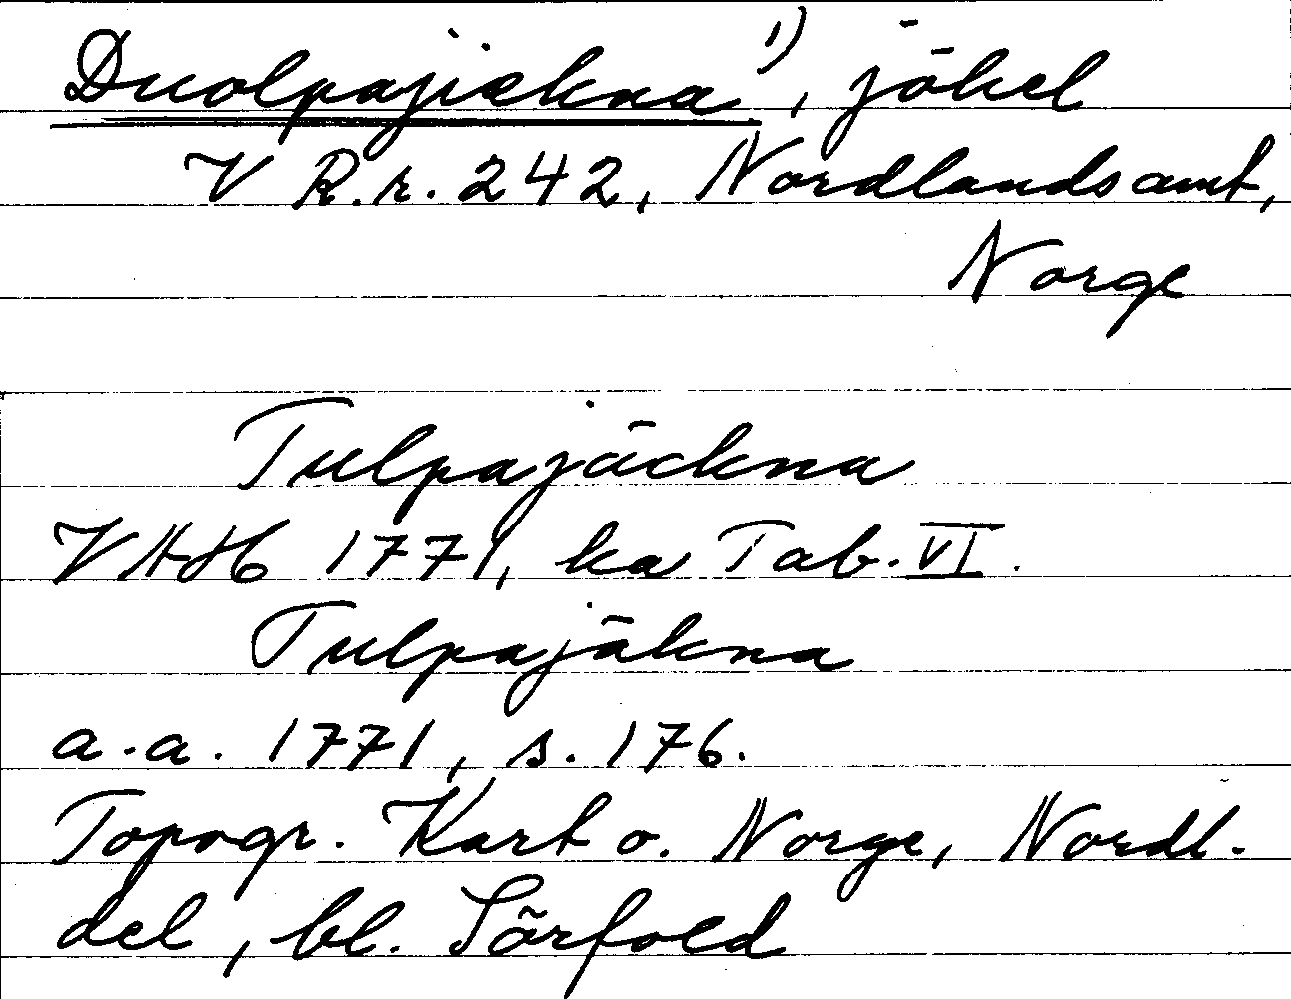 Duolpajiekna 1), jökel
V R.r. 242, Nordlands amt,
Norge
Tulpajäckna
VAH 1771, ka Tab. VI.
Tulpajäkna
a.a. 1771, s. 176.
Topogr. Kart o. Norge, Nordl.
del, bl. Sörfold